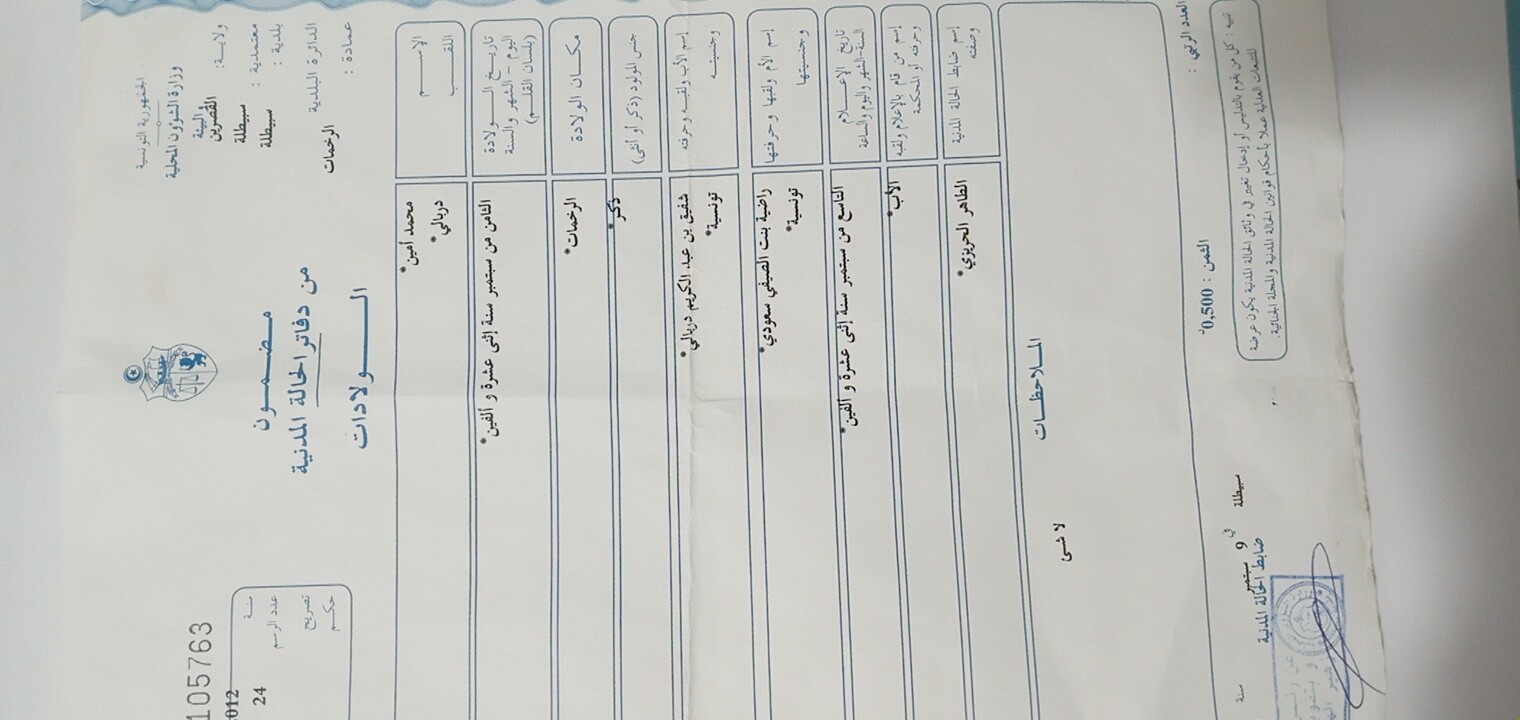 الجمهورية التونسية
وزارة الشؤون المحلية
والبيئة
ولاية: القصرين
معتمدية : سبيطلة
بلدية : سبيطلة
الدائرة البلدية
عمادة : الرخمات
مضمـــون
من دفاتر الحالة المدنية
الــــولادات
105763
سنة 012
عدد الرسم 24
تصريح
حكـم
الإســـم محمد أمين*
اللقـــب دربالي*
تاريــخ الــــولادة الثامن من سبتمبر سنة إثنى عشرة و ألفين*
اليوم - الشهر والسنة
(بلسان القلــم)
مكـــان الولادة الرخمات*
جنس المولود (ذكر أو أنثى) ذكر*
إسم الأب ولقبـه وحرفته شفيق بن عبد الكريم دربالي*
وجنسيتـه تونسية*
إسم الأم ولقبها وحرفتها راضية بنت الصيفي سعودي*
وجنسيتها تونسية*
تاريخ الإعـــلام التاسع من سبتمبر سنة إثنى عشرة و ألفين*
السنة-الشهر واليوم والساعة
إسم من قام بالإعلام ولقبه الأب*
وحرفته أو المحكمة
إسم ضابط الحالة المدنية الطاهر الحويزي*
وصفته
الملاحظـــات
لا شئ
العدد الرتبي :
الثمن : 0,500د
تنبيه : كل من يقوم بالتدليس أو إدخال تغيير في وثائق الحالة المدنية يكون عرضة
للتتبعات العدلية عملا بأحكام قوانين الحالة المدنية والمجلة الجنائية.
سبيطلة في 9 سبتمبر سنة
ضابط الحالة المدنية